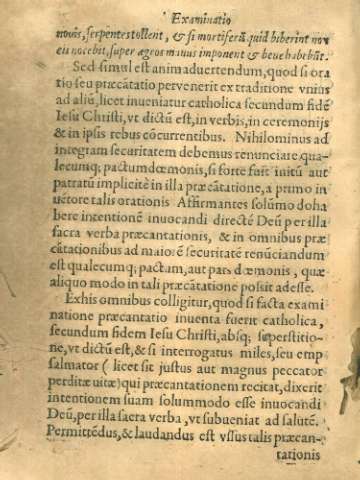 Examinatio
nouis, serpentes tollent, & si mortiferũ quid biberint non
eis nocebit, super ægros manus imponent & bene habebũt.
Sed simul est animaduertendum, quod si ora
tio seu præcãtatio peruenerit ex traditione vnius
ad aliũ, licet inueniatur catholica secundum fidẽ
Iesu Christi, vt dictũ est, in verbis, in ceremonijs
& in ipsis rebus cõcurrentibus. Nihilominus ad
integram securitatem debemus renunciare qua-
lecumq; pactum dœmonis, si forte fuit initũ aut
patratũ implicitè in illa præcãtatione, a primo in
uẽtore talis orationis Affirmantes solũmo do ha
bere intentionẽ inuocandi directè Deũ per illa
sacra verba præcantationis, & in omnibus præ
cãtationibus ad maiorẽ securitatẽ renũciandum
est qualecumq; pactam, aut pars dæmonis, quæ
aliquo modo in tali præcãtatione posuit adesse.
Exhis omnibus colligitur, quod si facta exami
natione præcantatio inuenta fuerit catholica,
secundum fidem Iesu Christi, absq; superstitio-
ne, vt dictũ est, & si interrogatus miles, seu emp
salmator ( licet sit justus aut magnus peccator
perditæ uitæ) qui præcantationem recitat, dixerit
intentionem suam solummodo esse inuocandi
Deũ, per illa sacra verba, vt subueniat ad salutẽ.
Permittẽdus, & laudandus est vssus talis præcan-
tationis